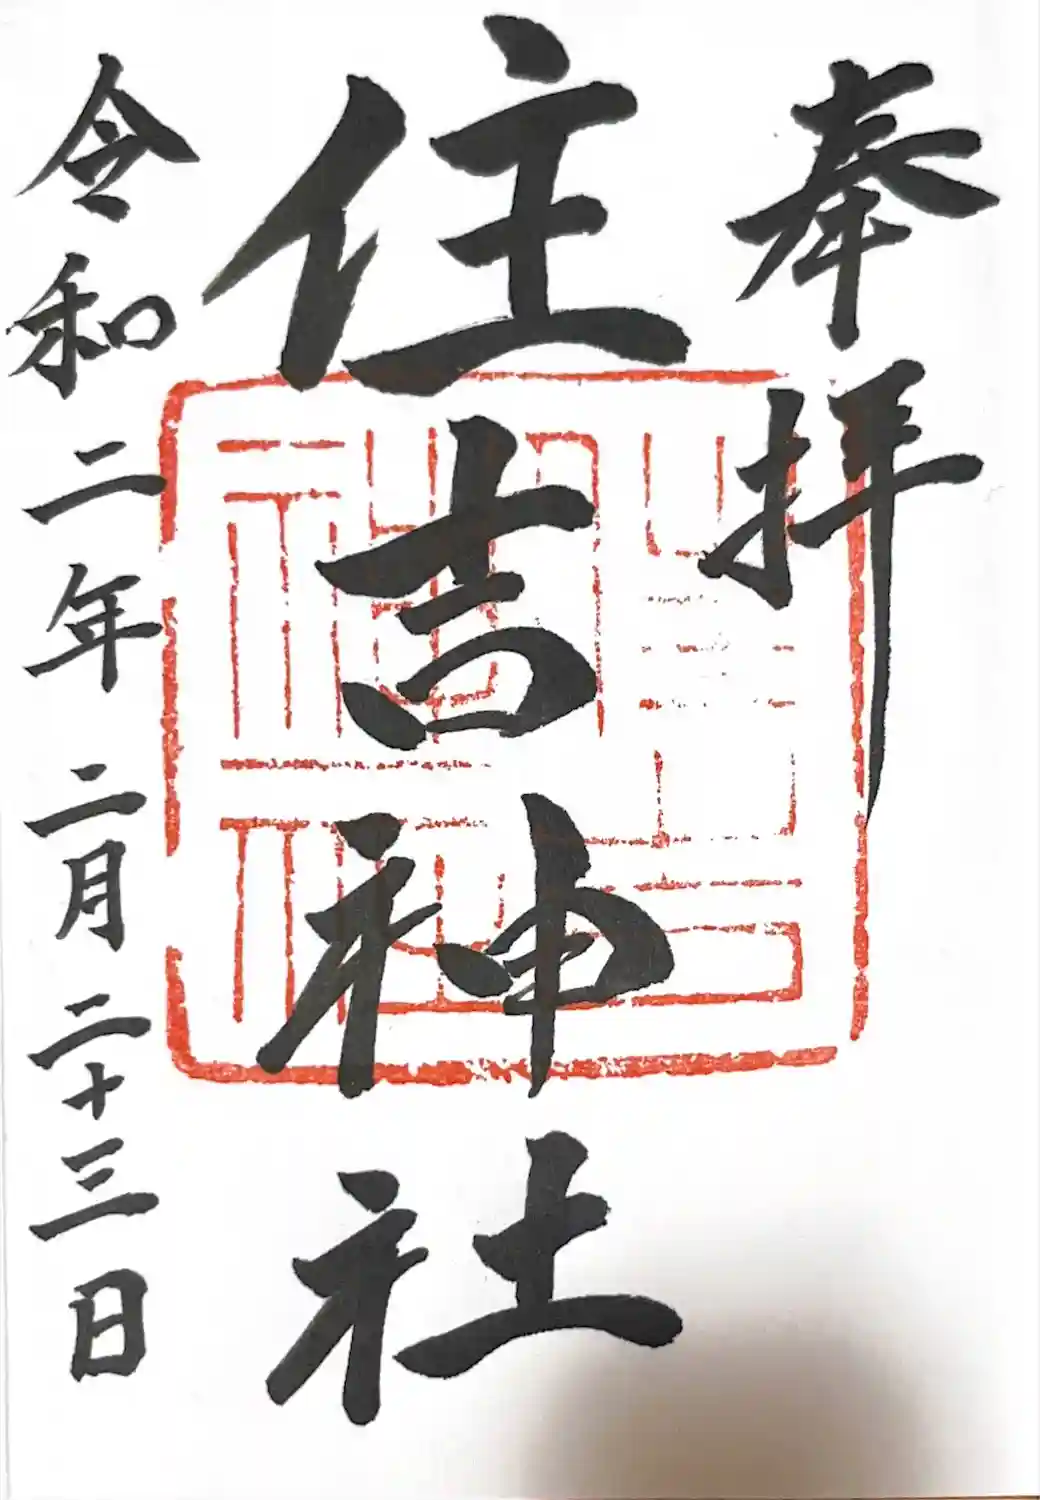 奉拝
住吉神社
令和二年二月二十三日
住吉神社